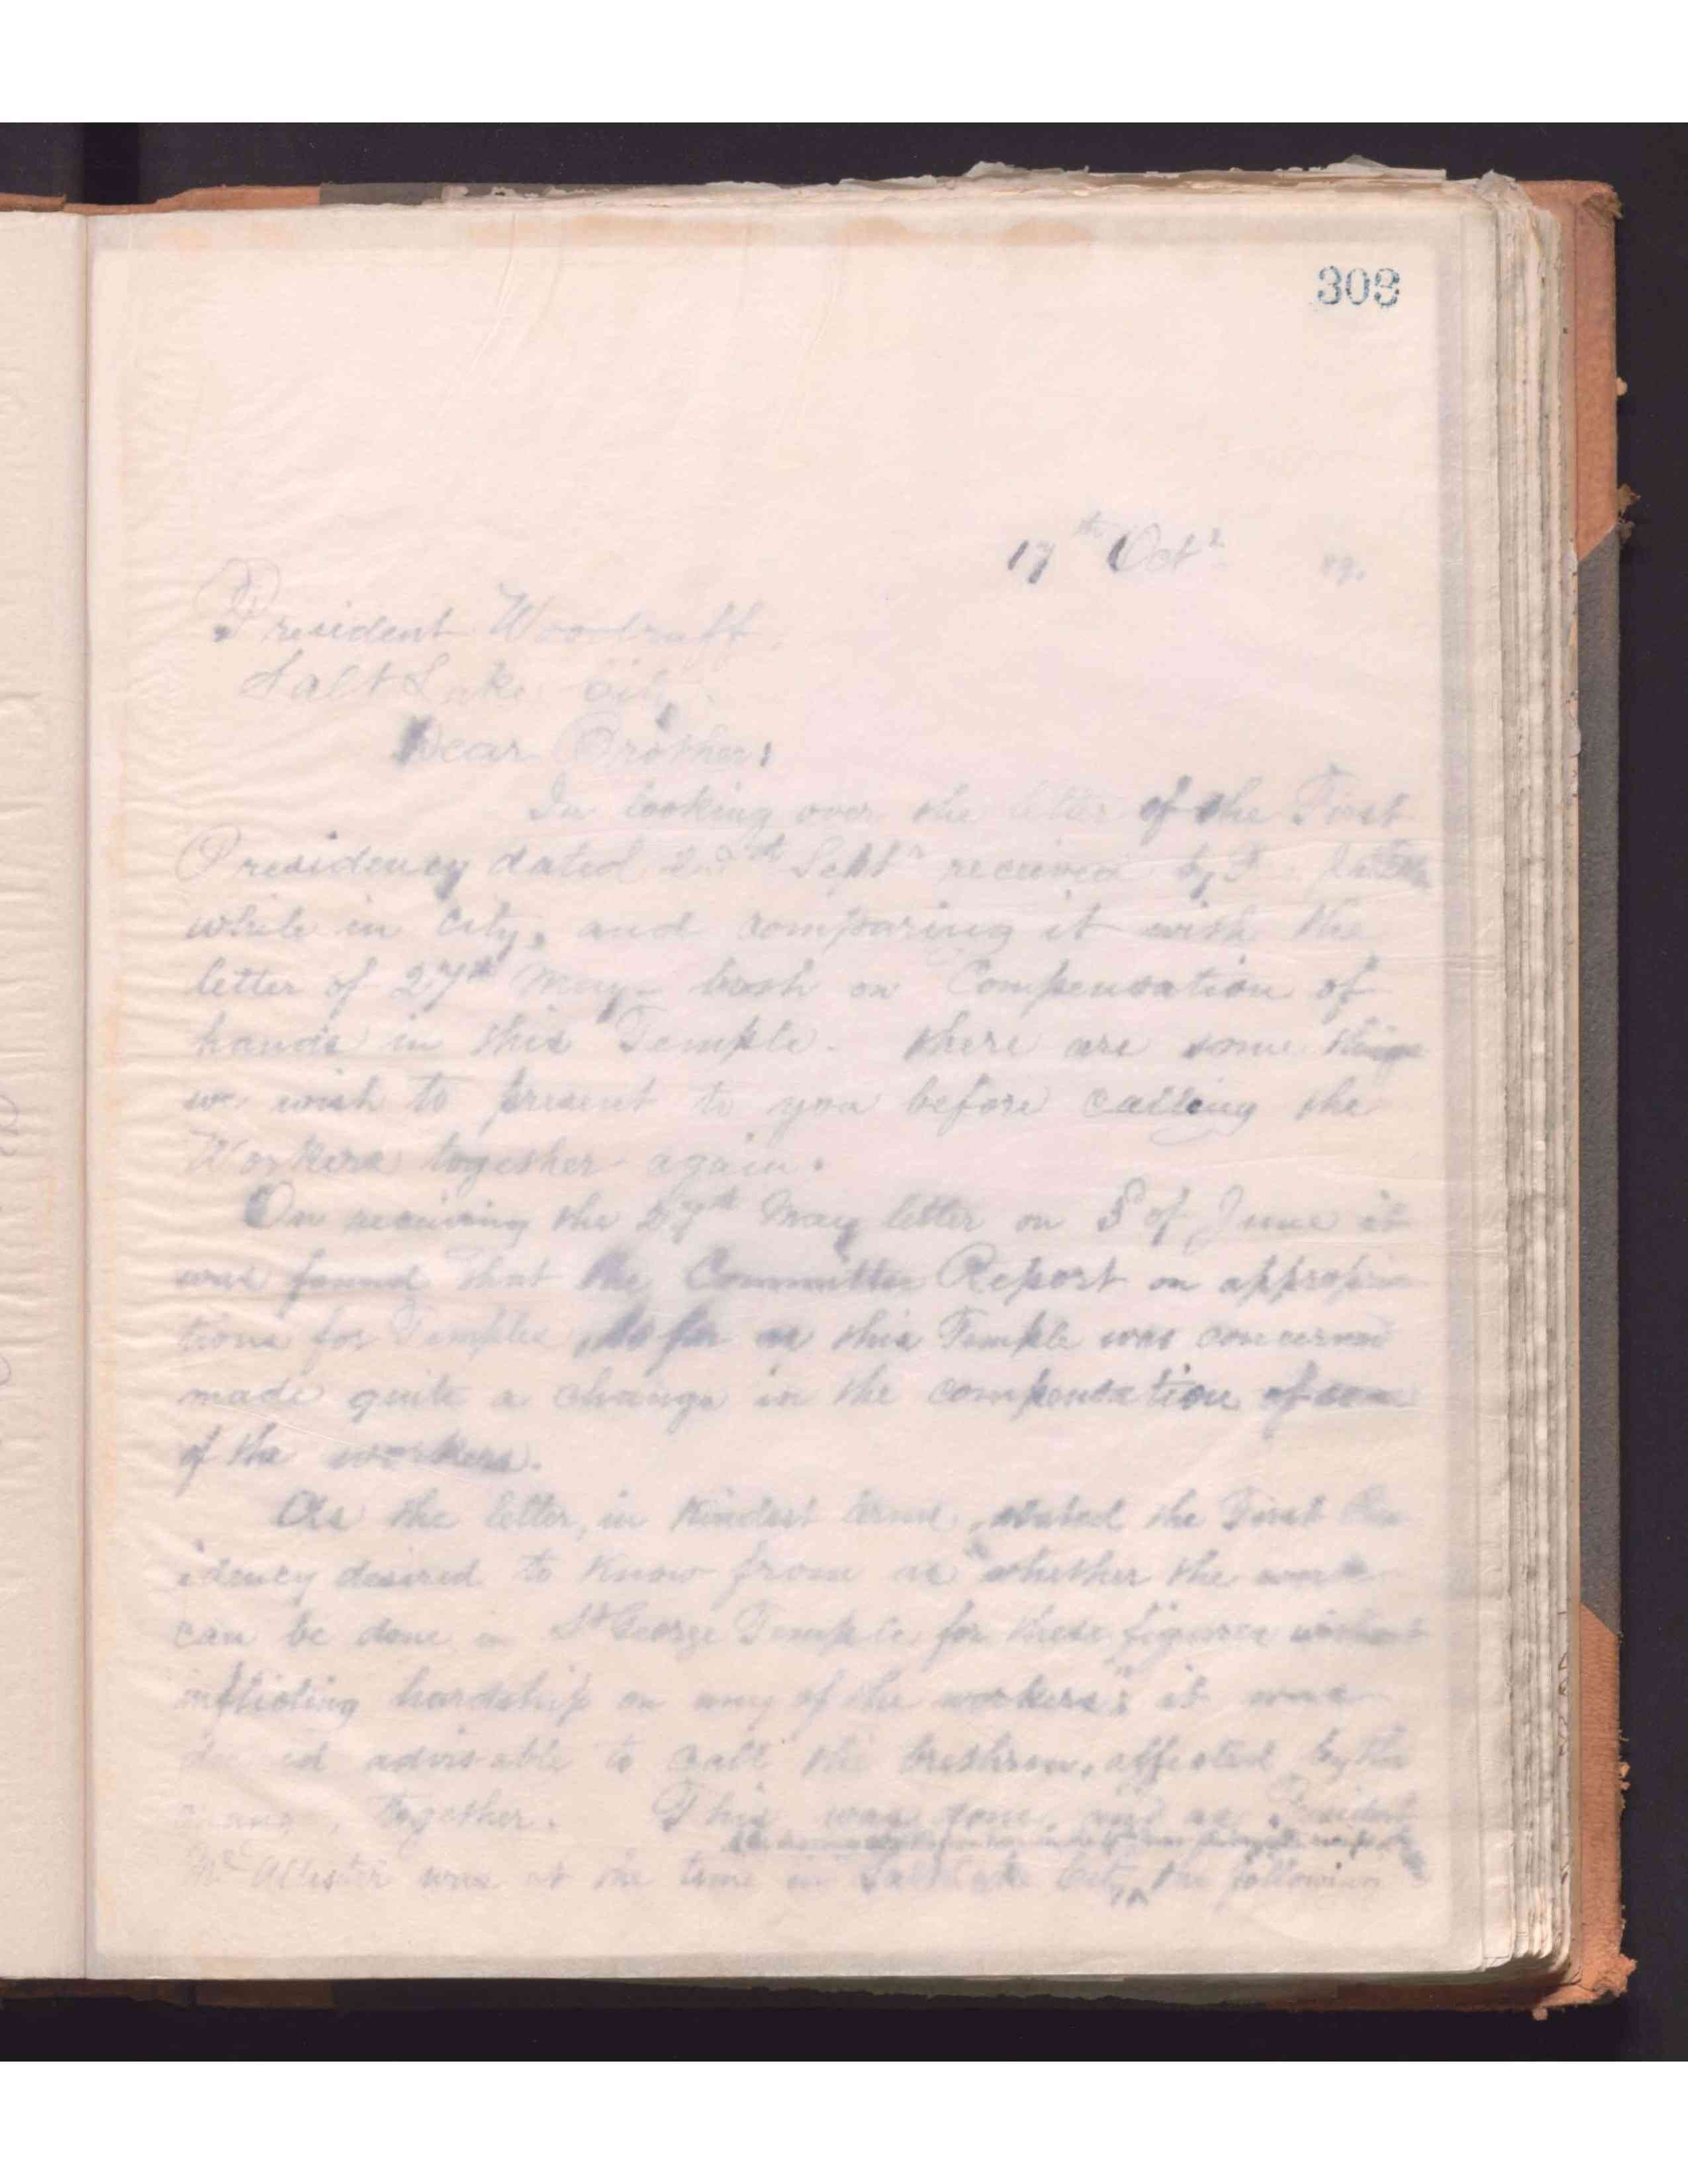 308
17th Octr 89.
President Woodruff,
Salt Lake City.
Dear Brother:
In looking over the letter of the First
Presidency dated Septr received by
while in City, and comparing it with the
letter of 27th May - both on Compensation of
hands in this Temple. there are some things
we wish to present to you before calling the
Workers together again.
On receiving the 27th May letter on 5 of June it
was found that the Committee Report on appropria
tions for Temples, so far as this Temple was concerned
made quite a change in the compensation of some
of the workers.
As the letter, in kindest terms, stated the First Pres
idency desired to know from us "whether the work
can be done in St George Temple for these figures without
inflicting hardship on any of the workers;" it was
deemed advisable to call the brethren, affected by the
change, together. This was done, and as President
McAllister was at the time in Salt Lake City, the following